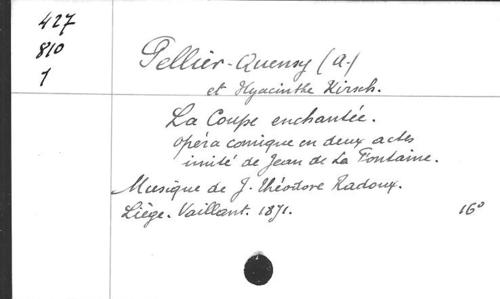 427
810
1
Pellier-Quensy (A.)
et Hyacinthe Kirsch.
La Coupe enchantée.
opéra comique en deux actes
imité de Jean de La Fontaine.
Musique de J. Théodore Radoux.
Liège. Vaillant. 1871. 16º